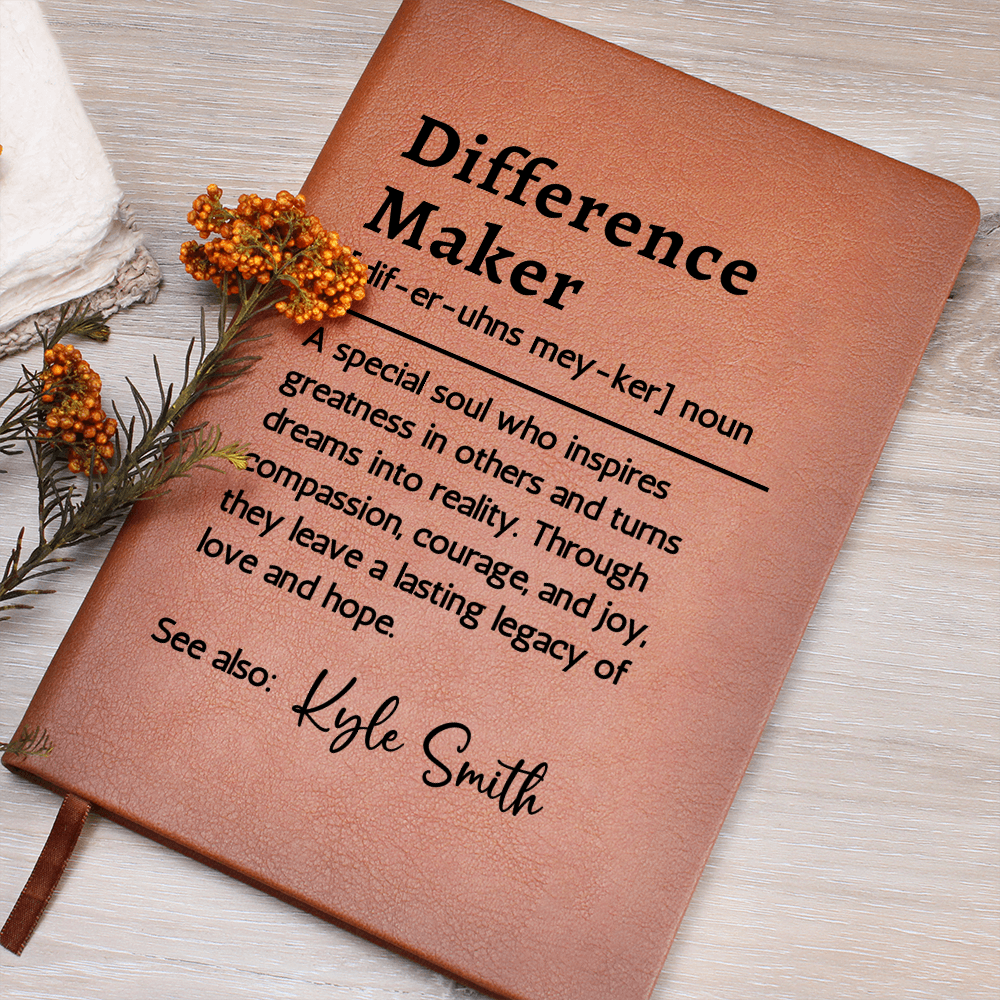 Difference
Maker
[dif-er-uhns mey-ker] noun
A special soul who inspires
greatness in others and turns
dreams into reality. Through
compassion, courage, and joy,
they leave a lasting legacy of
love and hope.
See also: Kyle Smith